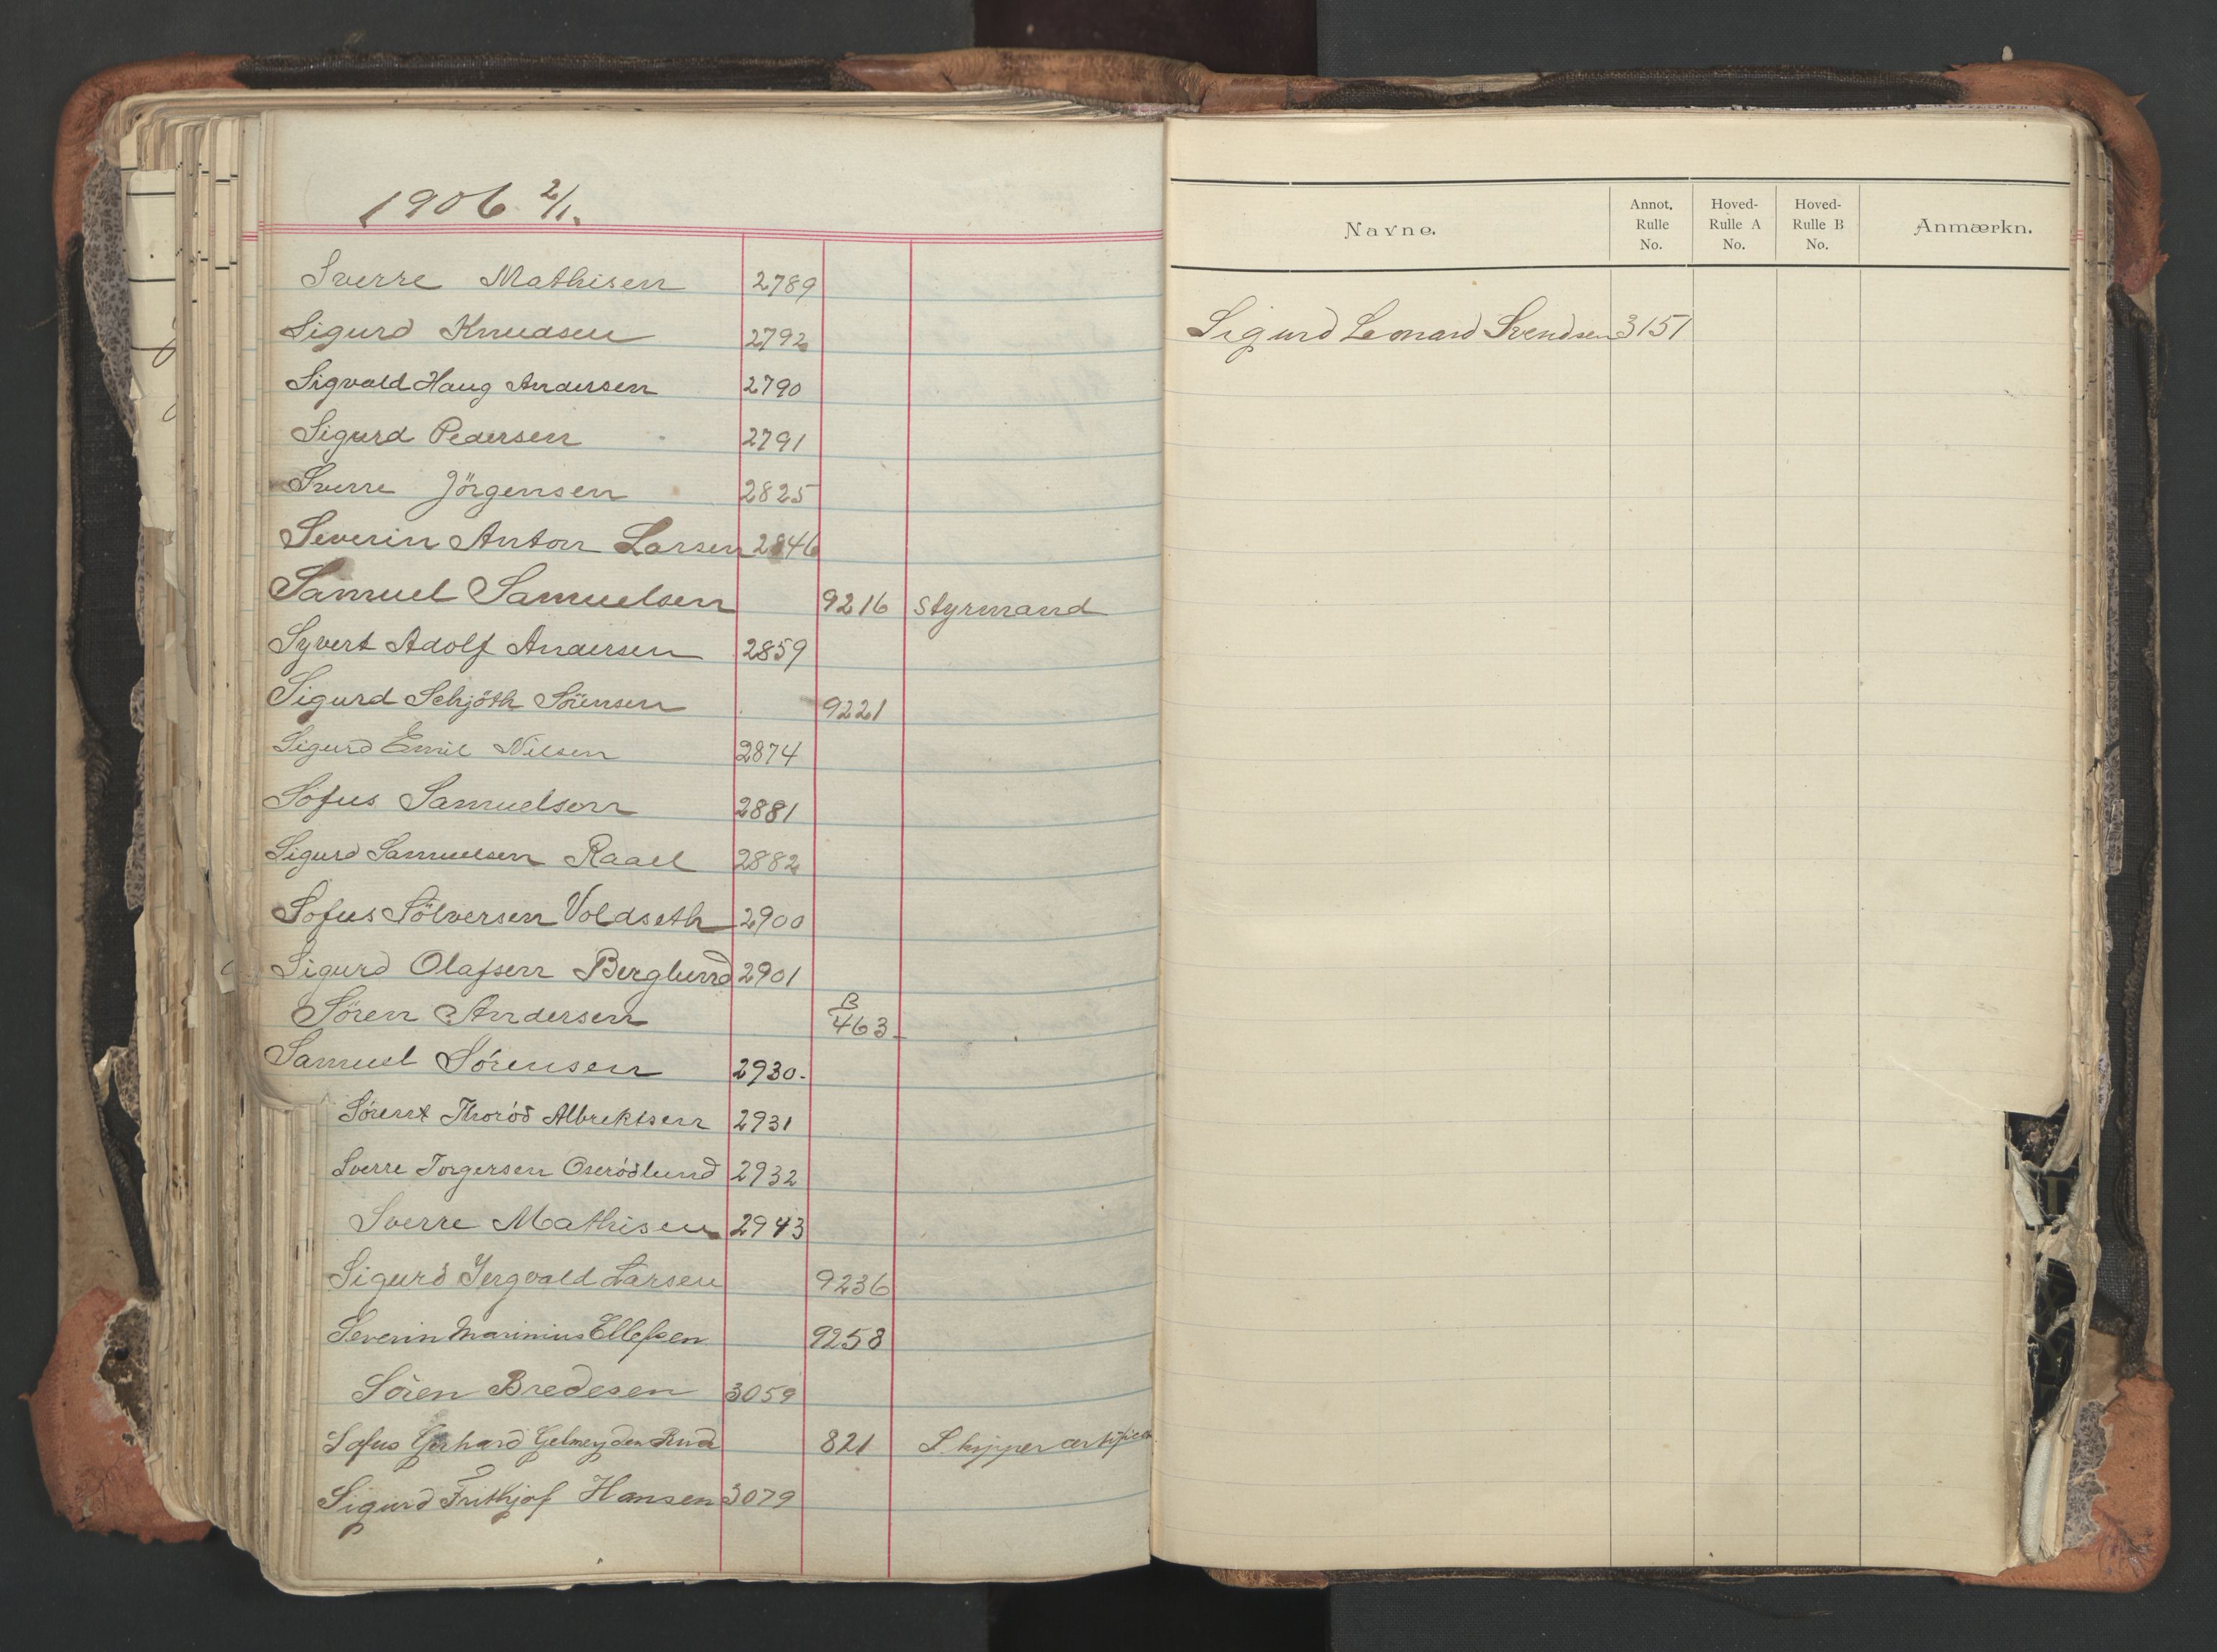 1906 2/1.
Sverre Mathisen 2789
Sigurd Knudsen 2792
Sigvald Haug Andersen 2790
Sigurd Pedersen 2791
Sverre Jörgensen 2825
Severin Anton Larsen 2846
Samuel Samuelsen 9216 Styrmand
Syvert Adolf Andersen 2859
Sigurd Schjöth Sörensen 9221
Sigurd Emil Nilsen 2874
Sofus Samuelsen 2881
Sigurd Samuelsen Raael 2882
Sofus Sölversen Voldseth 2900
Sigurd Olafsen Berglund 2901
Sören Andersen B 463
Samuel Sörensen 2930.
Thoröd Albrektsen 2931
Sverre Torgersen Oserödlund 2932
Sverre Mathisen 2943
Sigurd Larsen 9236
Severin Marinius Ellefsen 9258
Sören Bredesen 3059
Sofus Gerhard 821
Sigurd Frithjof Hansen 3079
Navne. Annot. Rulle No. Hoved-Rulle A No. Hoved-Rulle B No. Anmærkn.
Sigurd Leonard Svendsen 3151